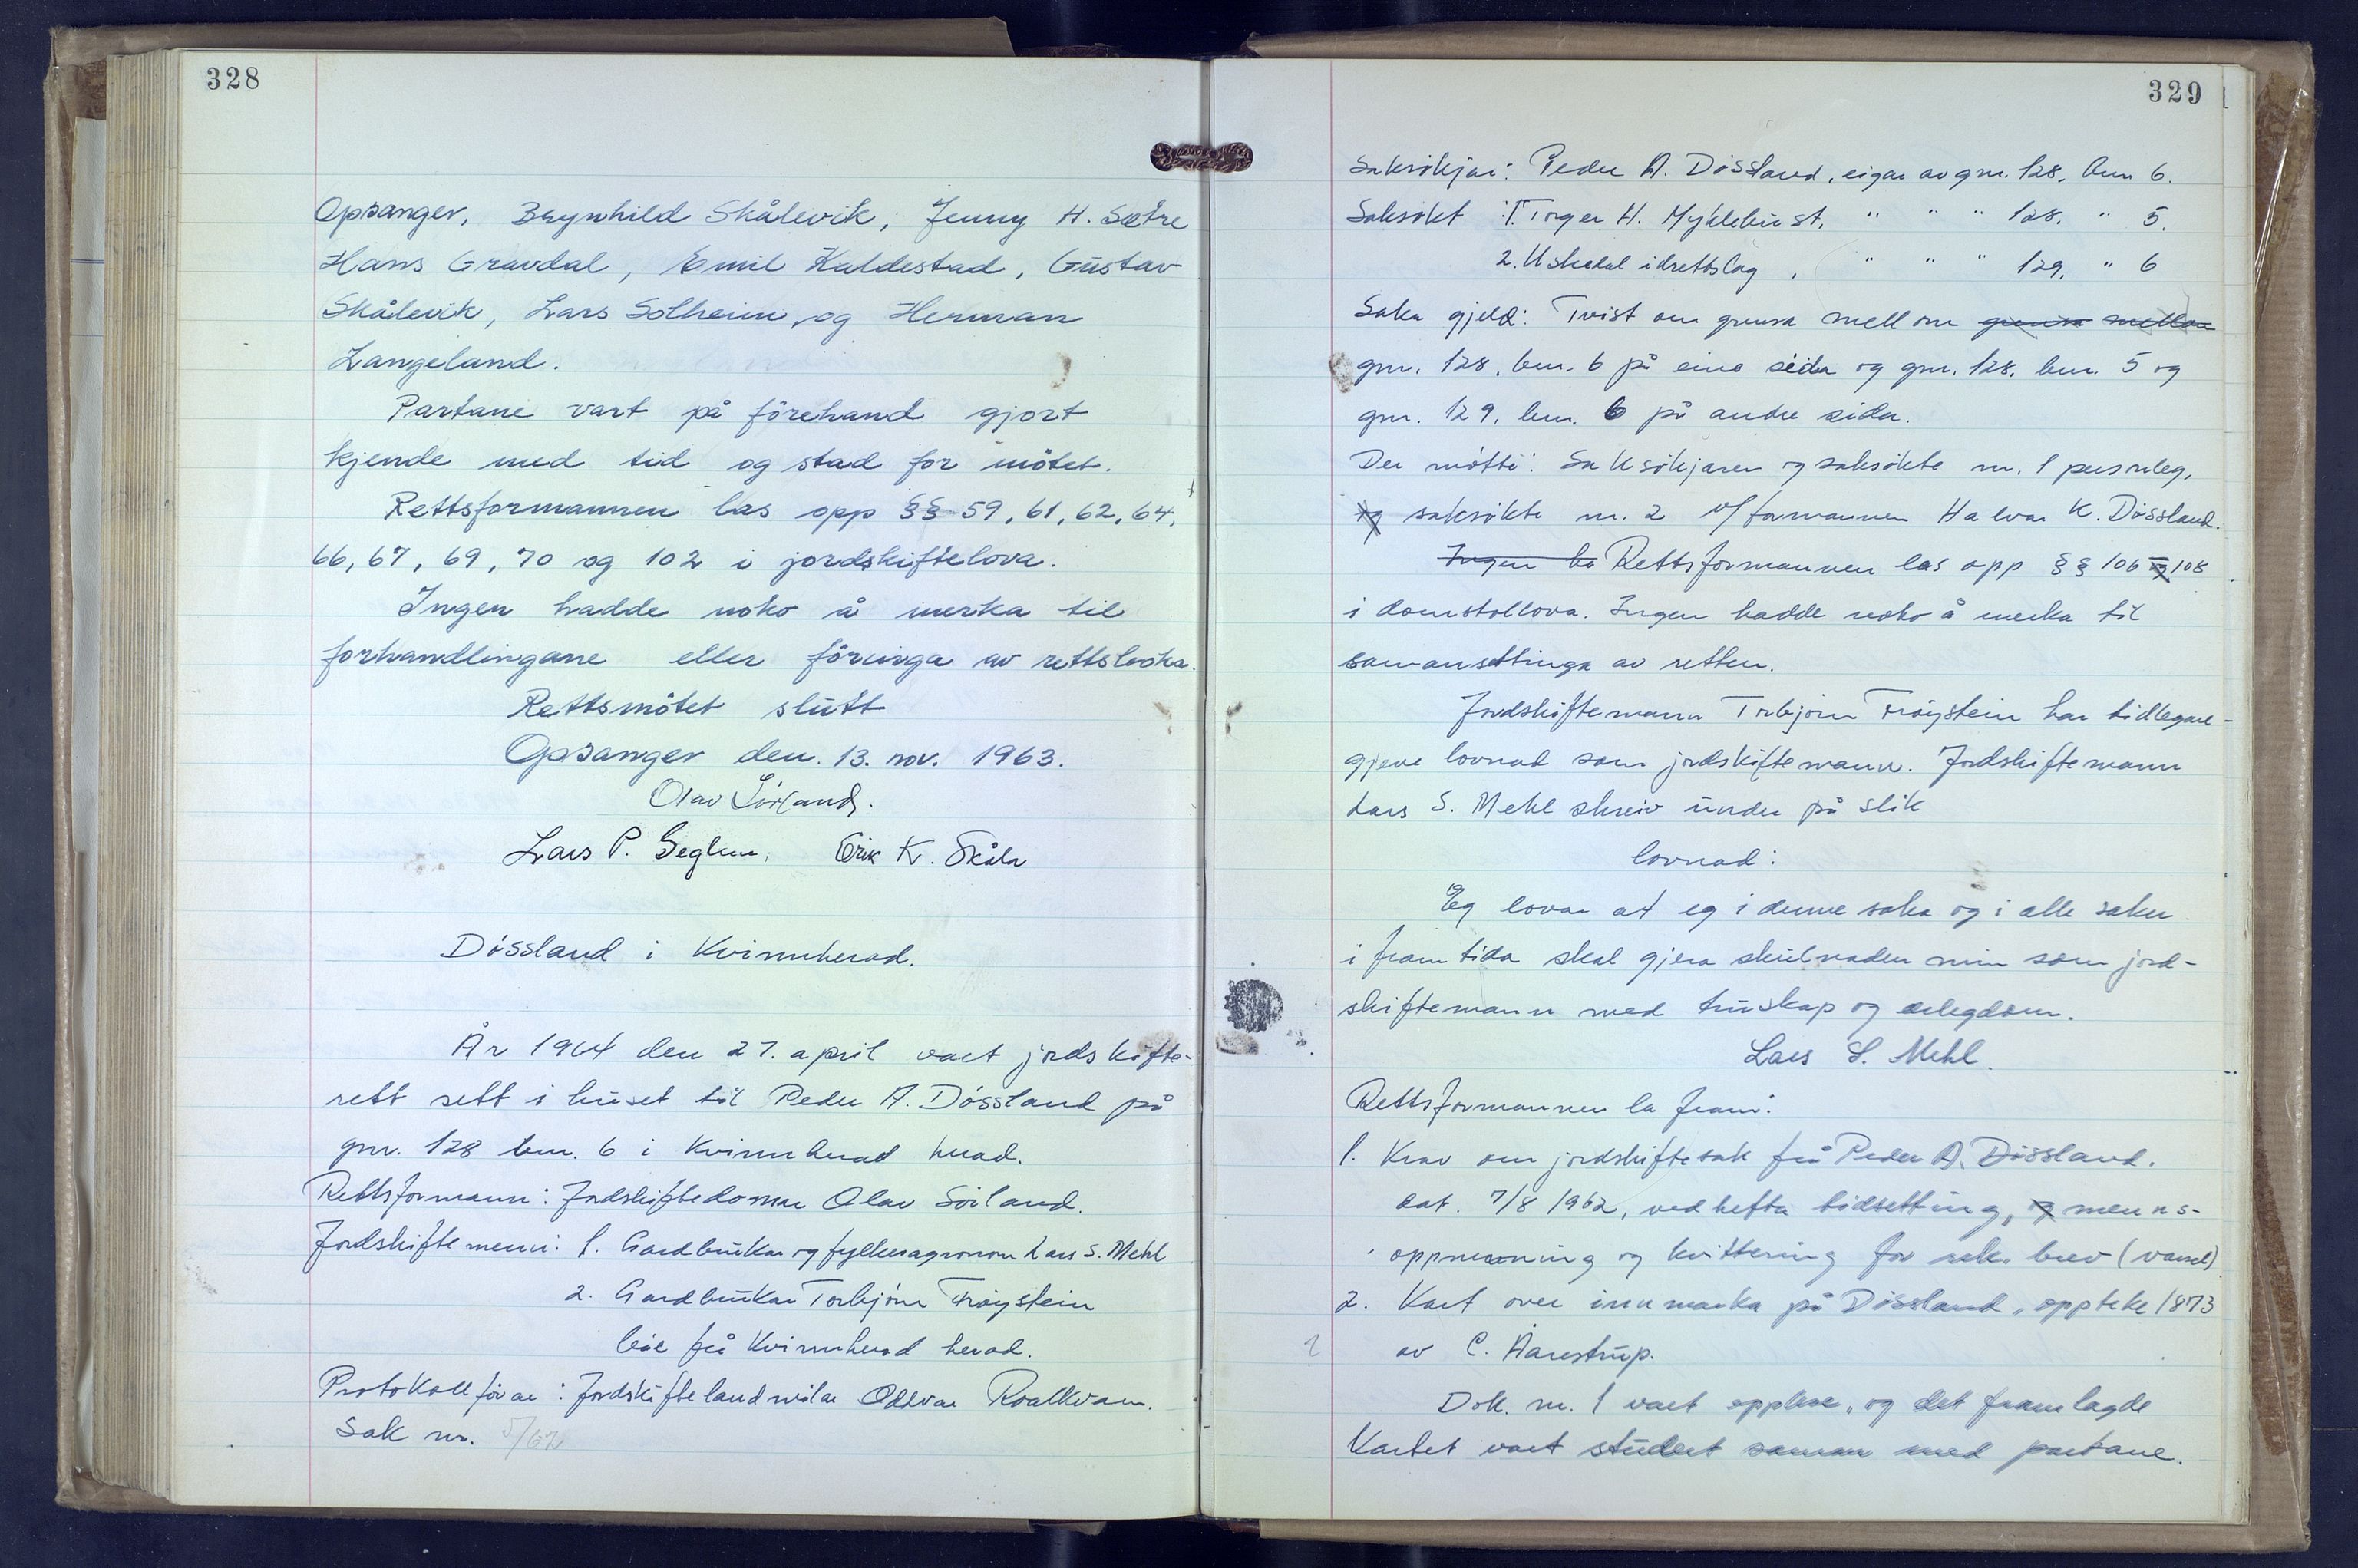 328
Opsanger, Brynhild Skålevik, Jenny H. Sætre
Hans Gravdal, Emil Kaldestad, Gustav
Skålevik, Lars Solheim, og Herman
Langeland.
Partane vart på förehand gjort
kjende med tid og stad for mötet.
Rettsformannen las opp §§ 59, 61, 62, 64,
66, 67, 69, 70 og 102 i jordskiftelova.
Ingen hadde noko å merka til
forhandlingane eller föringa av rettsboka.
Rettsmötet slutt
Opsanger den. 13. nov. 1963.
Olav Sörland.
Lars P. Seglem. Erik K. Skåla
Dössland i Kvinnherad.
År 1964 den 27. april vart jordskifte-
rett sett i huset til Peder A. Dössland på
gnr. 128 bnr. 6 i Kvinnherad herad.
Rettsformann: Jordskiftedomar Olav Sörland.
Jordskiftemenn: 1. Gardbrukar og fylkesagronom Lars S. Mehl
2. Gardbrukar Torbjörn Fröystein
båe frå Kvinnherad herad.
Protokollförar: Jordskiftelandmålar Oddvar Roalkvam.
Sak nr. 5/62
329
Saksökjar: Peder A. Dössland, eigar av gnr. 128, bnr 6.
Saksökt: 1. Torger H. Myklebust, " " " 128, " 5.
2. Uskedal idrettslag, " " " 129, " 6
Saka gjeld: Tvist om grensa mellom grensa mellom
gnr. 128, bnr. 6 på eine sida og gnr. 128, bnr. 5 og
gnr. 129, bnr. 6 på andre sida.
Der mötte: Saksökjaren og saksökte nr. 1 personleg,
og saksökte nr. 2 v/formannen Halvor K. Dössland.
Ingen ha Rettsformannen las opp §§ 106 og 108
i domstollova. Ingen hadde noko å merka til
samansettinga av retten.
Jordskiftemann Torbjörn Fröystein har tidlegare
gjeve lovnad som jordskiftemann. Jordskiftemann
Lars S. Mehl skreiv under på slik
lovnad:
Eg lovar at eg i denne saka og i alle saker
i framtida skal gjera skulnaden min som jord-
skiftemann med truskap og ærlegdom.
Lars S. Mehl.
Rettsformannen la fram:
1. Krav om jordskiftesak frå Peder A. Dössland.
dat. 7/8 1962, vedhefta tidsetting, og menns-
oppnemning og kvittering for rek. brev (varsel)
2. Kart over innmarka på Dössland, oppteke 1873
av C. Aarestrup.
Dok. nr. 1 vart opplese, og det framlagde
Kartet vart studert saman med partane.